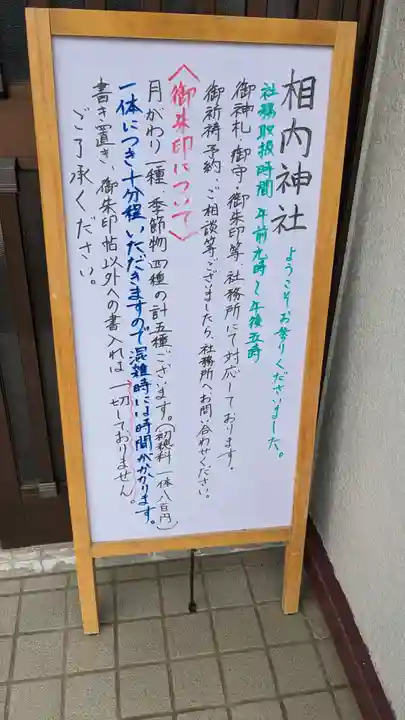 相内神社
ようこそお参りくださいました。
社務取扱時間 午前九時～午後五時
御神札・御守・御朱印等 社務所にて対応しております。
御祈祷予約、ご相談等ございましたら、社務所へお問い合わせください。
〈御朱印について〉
月がわり一種、季節物四種の計五種ございます。(初穂料 一体八百円)
一体につき、十分程いただきますので混雑時には時間がかかります。
書き置き、御朱印帖以外への書入れは一切しておりません。
ご了承ください。